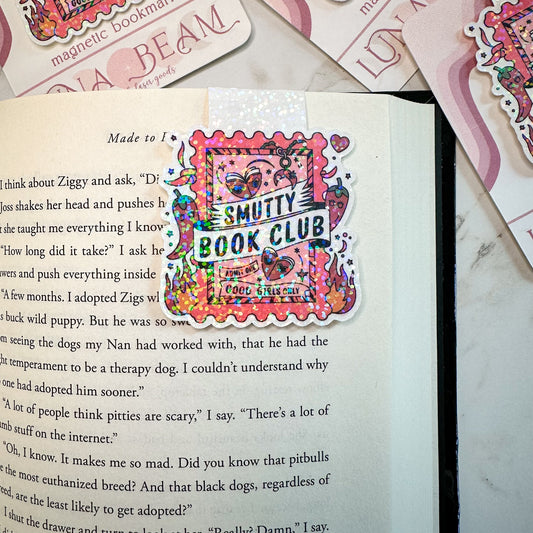 GOOD
magnetic bookmark
LUNA BEAM
laser goods
magnetic bookmark
LUNA
Made to
SMUTTY
BOOK CLUB
ADMIT ONE
GOOD GIRLS ONLY
I think about Ziggy and ask, “Di
Joss shakes her head and pushes h
she taught me everything I know
“How long did it take?” I ask he
and push everything inside
“A few months. I adopted Zigs wh
buck wild puppy. But he was so
seeing the dogs my Nan had worked with, that he had the
temperament to be a therapy dog. I couldn’t understand why
one had adopted him sooner.”
“A lot of people think pitties are scary,” I say. “There’s a lot of
stuff on the internet.”
“Oh, I know. It makes me so mad. Did you know that pitbulls
the most euthanized breed? And that black dogs, regardless of
are the least likely to get adopted?”
I shut the drawer and turn to look at her. “Really? Damn,” I say.